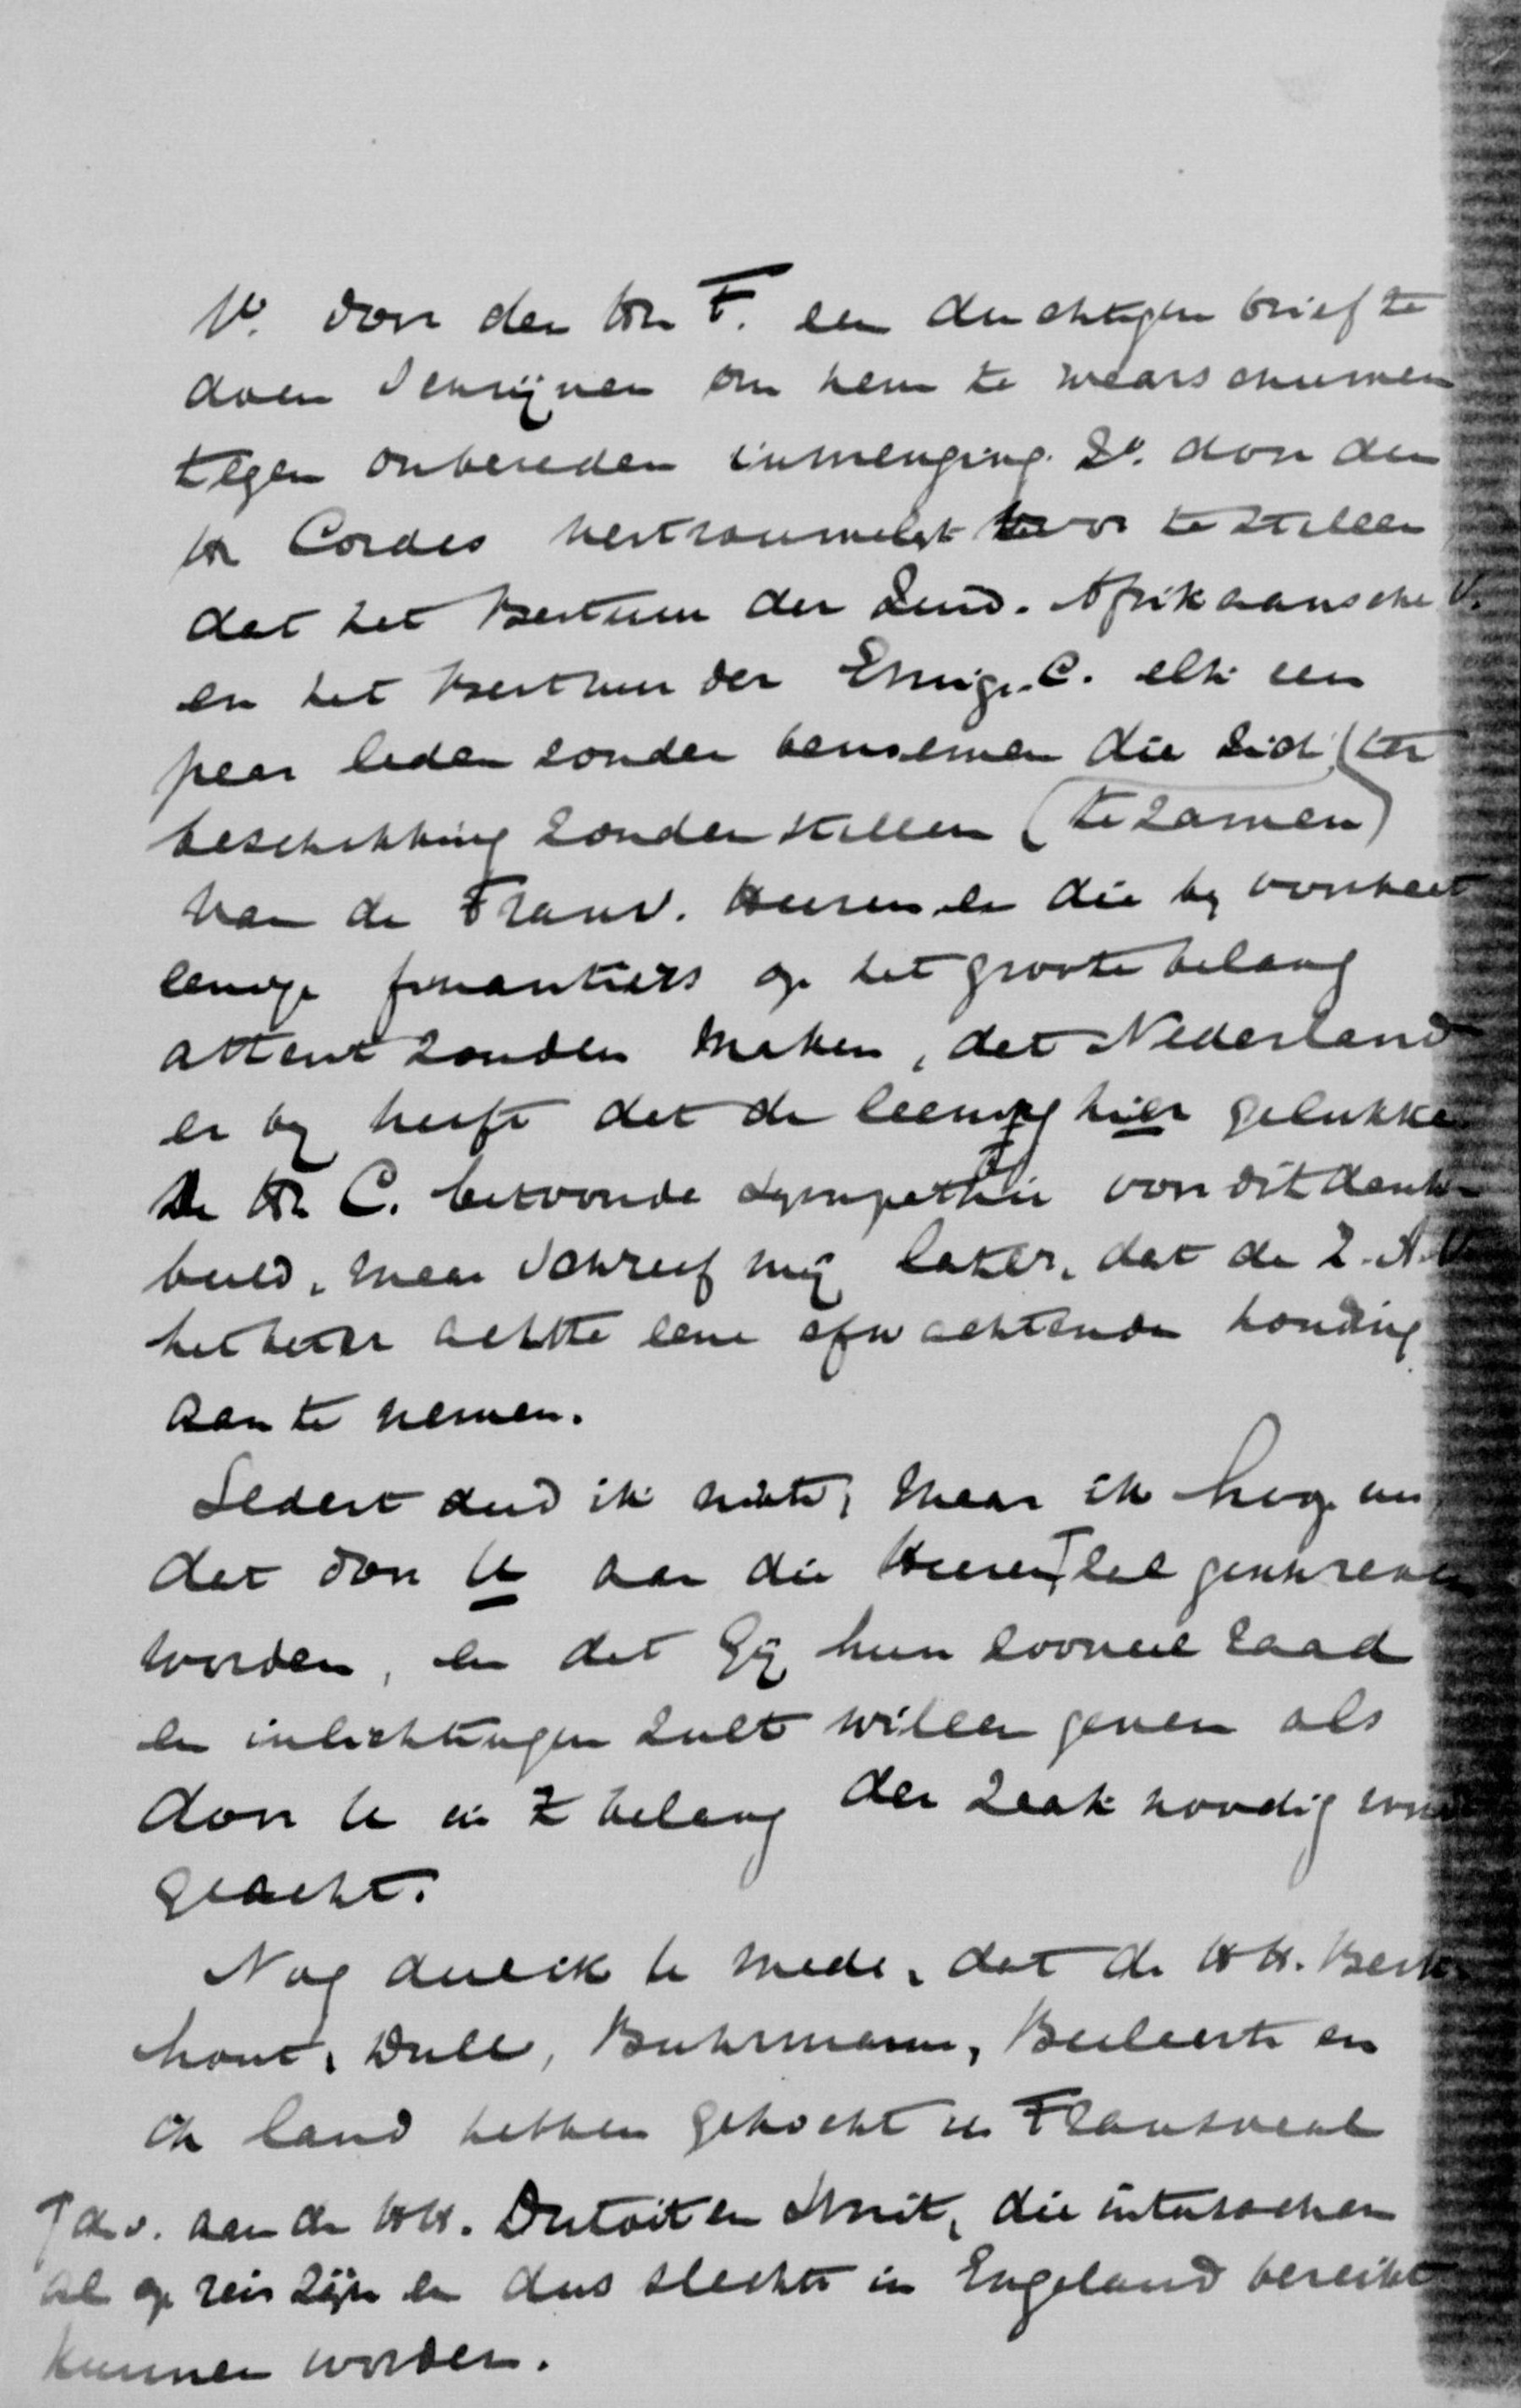 1º. door den Hr F. een duchtigen brief te
doen schrijven om hem te waarschuwen
tegen onberaden inmenging. 2º. door den
Hr Cordes vertrouwelijk voor te stellen
dat het Bestuur der Zuid-Afrikaansche V.
en het Bestuur der Emigr. C. elk een
paar leden zouden benoemen die zich (ter
beschikking zouden stellen (te zamen)
van de Transv. Heeren en die by voorkeur
eenige financiers op het groote belang
attent zouden maken, dat Nederland
er by heeft dat de leening hier gelukke
De Hr C. betoonde sympathie voor dit denk-
beeld, maar schreef mij later, dat de Z. A. V.
het beter achtte eene afwachtende houding
aan te nemen.
Sedert deed ik niets, maar ik hoop nu,
dat door U aan die Heeren⌈ zal geschreven
worden, en dat Gij hun zooveel raad
en inlichtingen zult willen geven als
door U in 't belang der zaak noodig word
geacht.
Nog deel ik U mede, dat de HH. Berk-
hout, Dull, Buhrmann, Beelaerts en
ik land hebben gekocht in Transvaal
⌈ d.i. aan de HH. Dutoit en Smit, die intusschen
al op reis zijn en dus slechts in Engeland bereikt
kunnen worden.